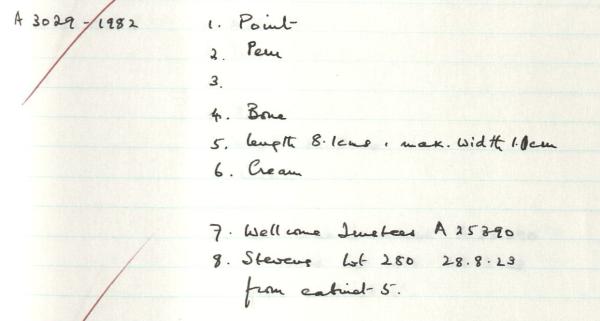 A 3029-1982 1. Point
2. Peru
3.
4. Bone
5. length 8.1cms, max. width 1.0cm
6. Cream
7. Wellcome Trustees A 25390
8. Stevens Lot 280 28.8.23
from cabinet 5.